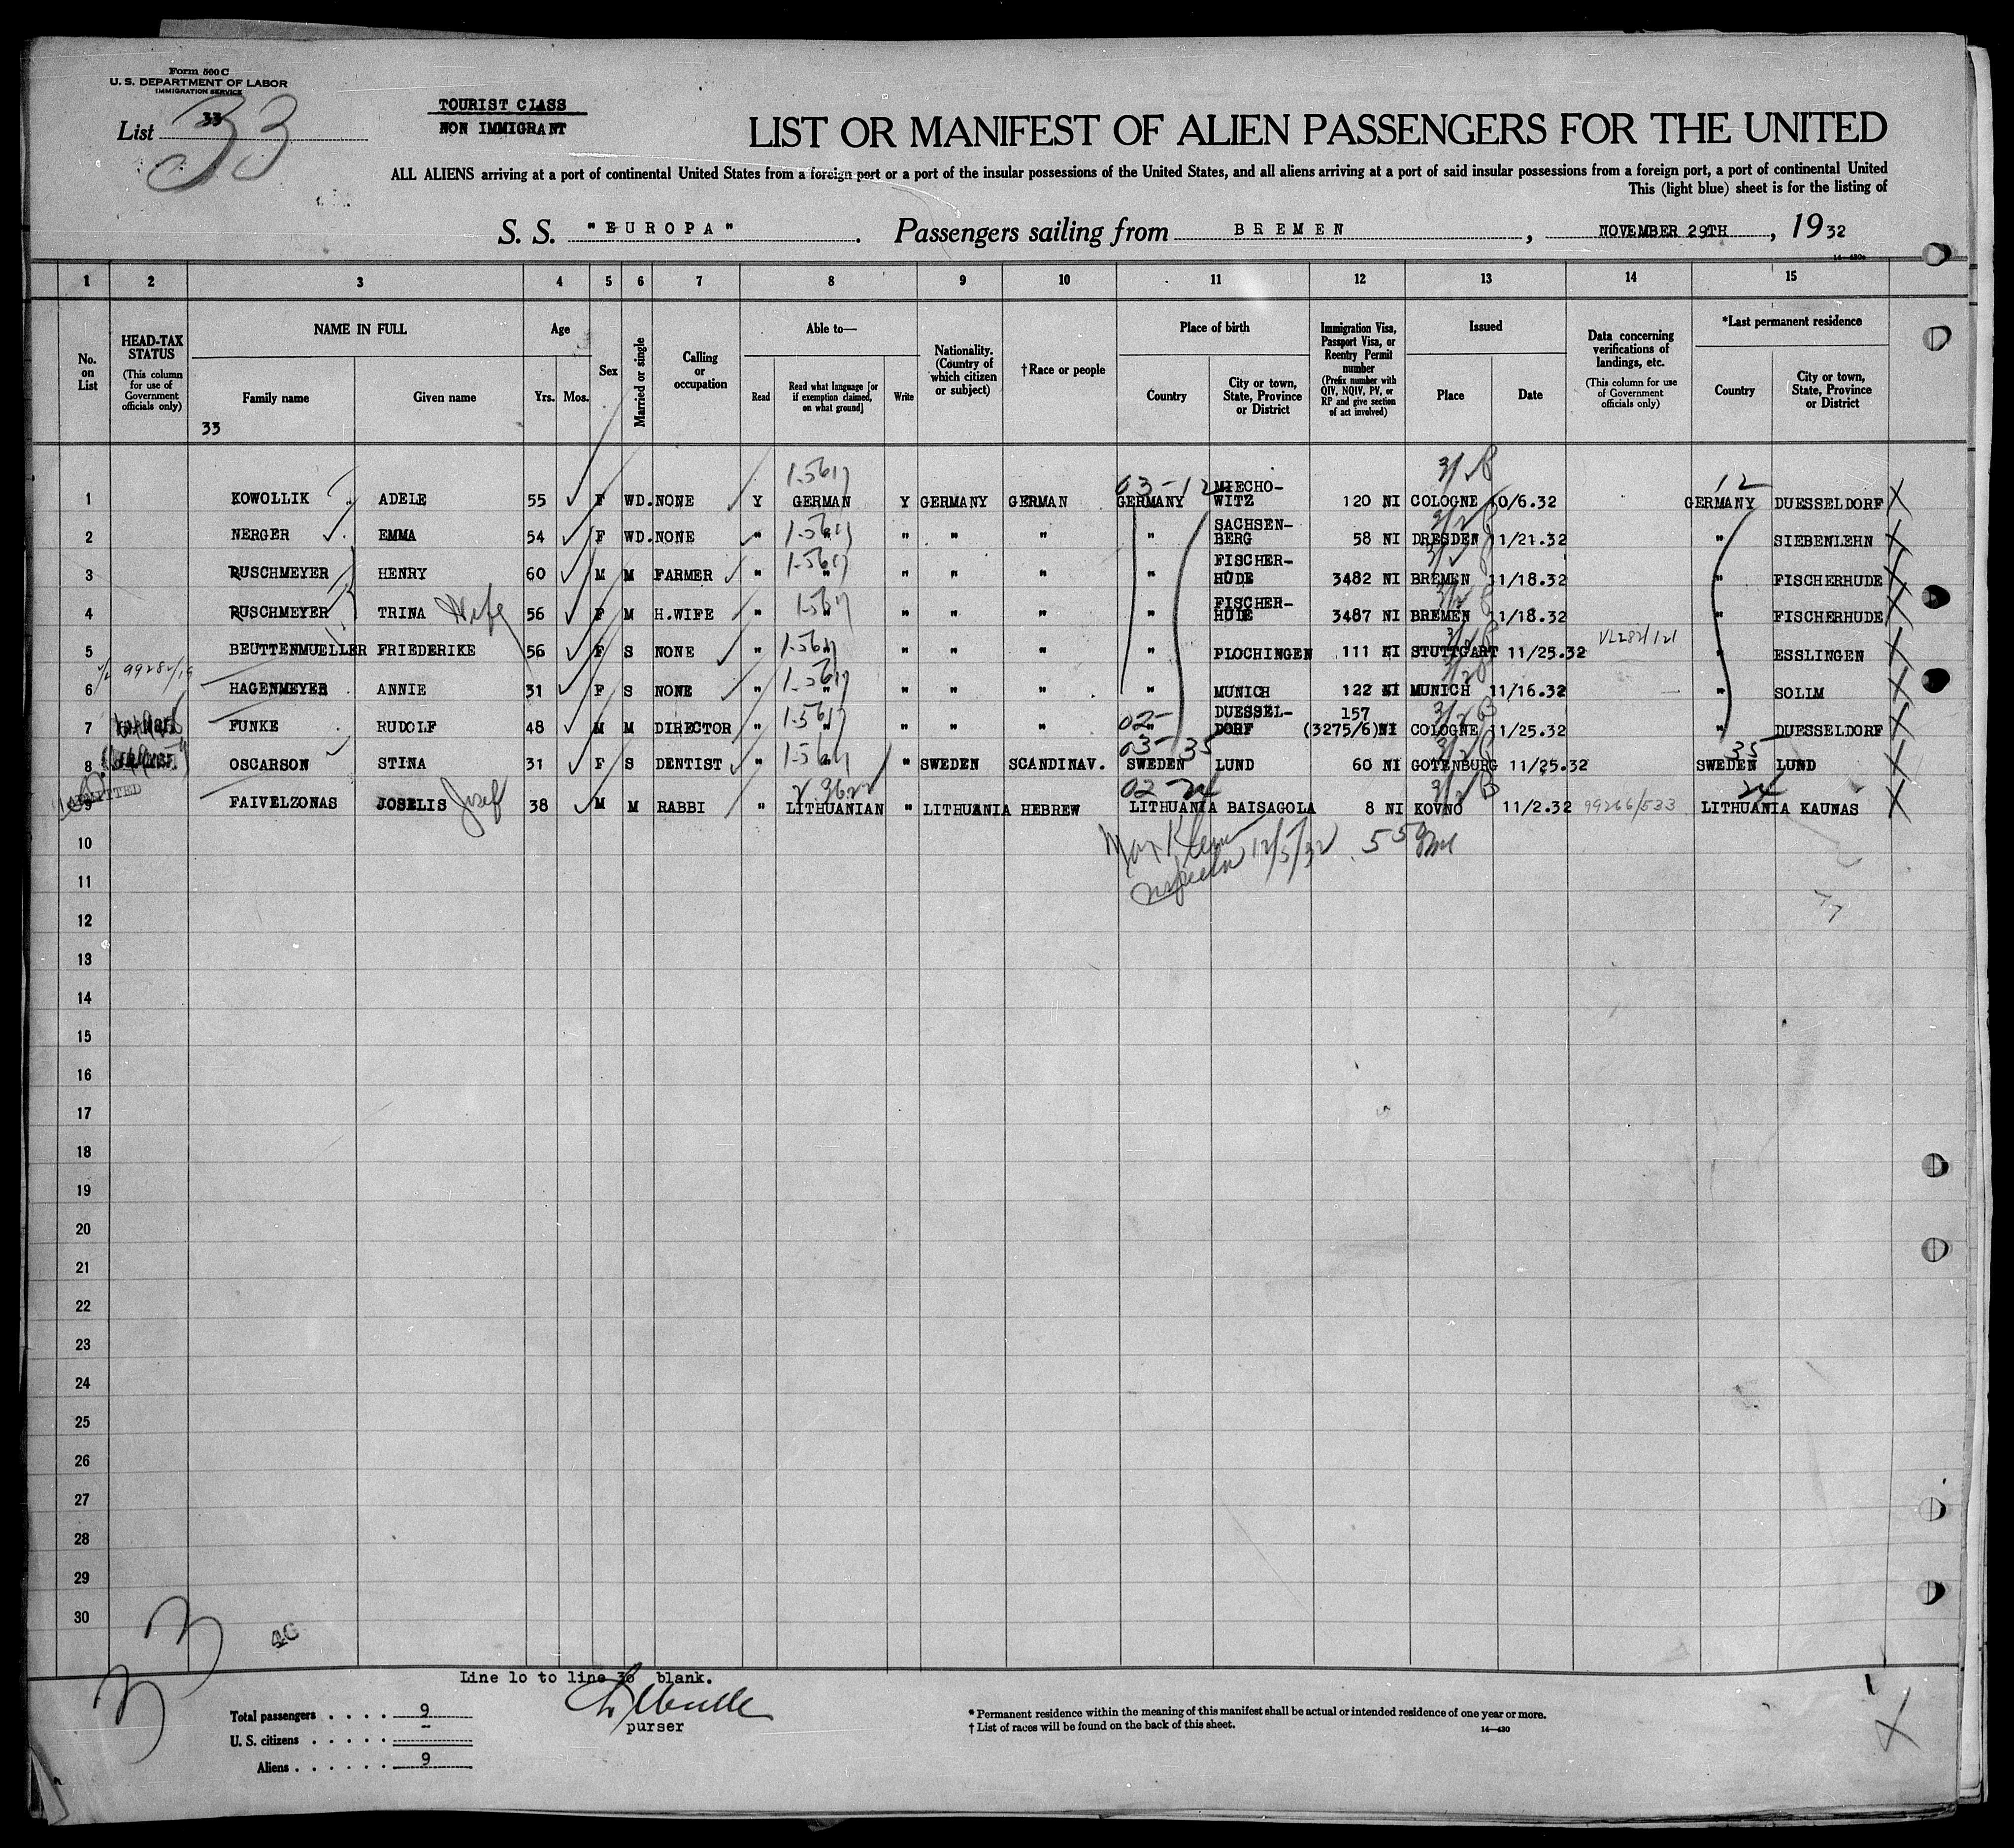 Form 500 C
U. S. DEPARTMENT OF LABOR
IMMIGRATION SERVICE
List 33
33
TOURIST CLASS
NON IMMIGRANT
LIST OR MANIFEST OF ALIEN PASSENGERS FOR THE UNITED
ALL ALIENS arriving at a port of continental United States from a foreign port or a port of the insular possessions of the United States, and all aliens arriving at a port of said insular possessions from a foreign port, a port of continental United
This (light blue) sheet is for the listing of
S. S. "EUROPA". Passengers sailing from BREMEN, NOVEMBER 29TH, 1932
14—430a
1 2 3 4 5 6 7 8 9 10 11 12 13 14 15
No. on List
HEAD-TAX STATUS (This column for use of Government officials only)
NAME IN FULL
Family name Given name
33
Age
Yrs. Mos.
Sex
Married or single
Calling or occupation
Able to—
Read Read what language [or if exemption claimed, on what ground] Write
Nationality. (Country of which citizen or subject)
†Race or people
Place of birth
Country City or town, State, Province or District
Immigration Visa, Passport Visa, or Reentry Permit number (Prefix number with QIV, NQIV, PV, or RP and give section of act involved)
Issued
Place Date
Data concerning verifications of landings, etc. (This column for use of Government officials only)
*Last permanent residence
Country City or town, State, Province or District
03-12 12
1 KOWOLLIK ADELE 55 F WD. NONE Y GERMAN Y GERMANY GERMAN GERMANY MIECHO-WITZ 120 NI COLOGNE 10/6.32 GERMANY DUESSELDORF X
2 NERGER EMMA 54 F WD. NONE " " " " " " SACHSEN-BERG 58 NI DRESDEN 11/21.32 " SIEBENLEHN X
3 RUSCHMEYER HENRY 60 M M FARMER " " " " " " FISCHER-HUDE 3482 NI BREMEN 11/18.32 " FISCHERHUDE X
4 RUSCHMEYER TRINA Wife 56 F M H.WIFE " " " " " FISCHER-HUDE 3487 NI BREMEN 11/18.32 " FISCHERHUDE X
5 BEUTTENMUELLER FRIEDERIKE 56 F S NONE " " " " " " PLOCHINGEN 111 NI STUTTGART 11/25.32 VL282/121 " ESSLINGEN X
99282/19
6 HAGENMEYER ANNIE 31 F S NONE " " " " " " MUNICH 122 NI MUNICH 11/16.32 " SOLIM X
7 FUNKE RUDOLF 48 M M DIRECTOR " " " " " 02- " DUESSEL-DORF 157 (3275/6) NI COLOGNE 11/25.32 " DUESSELDORF X
03-35 35
8 OSCARSON STINA 31 F S DENTIST " " " SWEDEN SCANDINAV. SWEDEN LUND 60 NI GOTENBURG 11/25.32 SWEDEN LUND X
ADMITTED
02-24 24
9 FAIVELZONAS JOSELIS Josef 38 M M RABBI " LITHUANIAN " LITHUANIA HEBREW LITHUANIA BAISAGOLA 8 NI KOVNO 11/2.32 99266/533 LITHUANIA KAUNAS X
10
Inspector 12/5/32
11
12
13
14
15
16
17
18
19
20
21
22
23
24
25
26
27
28
29
30
40
Line 10 to line 30 blank.
purser
Total passengers . . . . 9
U. S. citizens . . . . . —
Aliens . . . . . . 9
* Permanent residence within the meaning of this manifest shall be actual or intended residence of one year or more.
† List of races will be found on the back of this sheet.
14—430